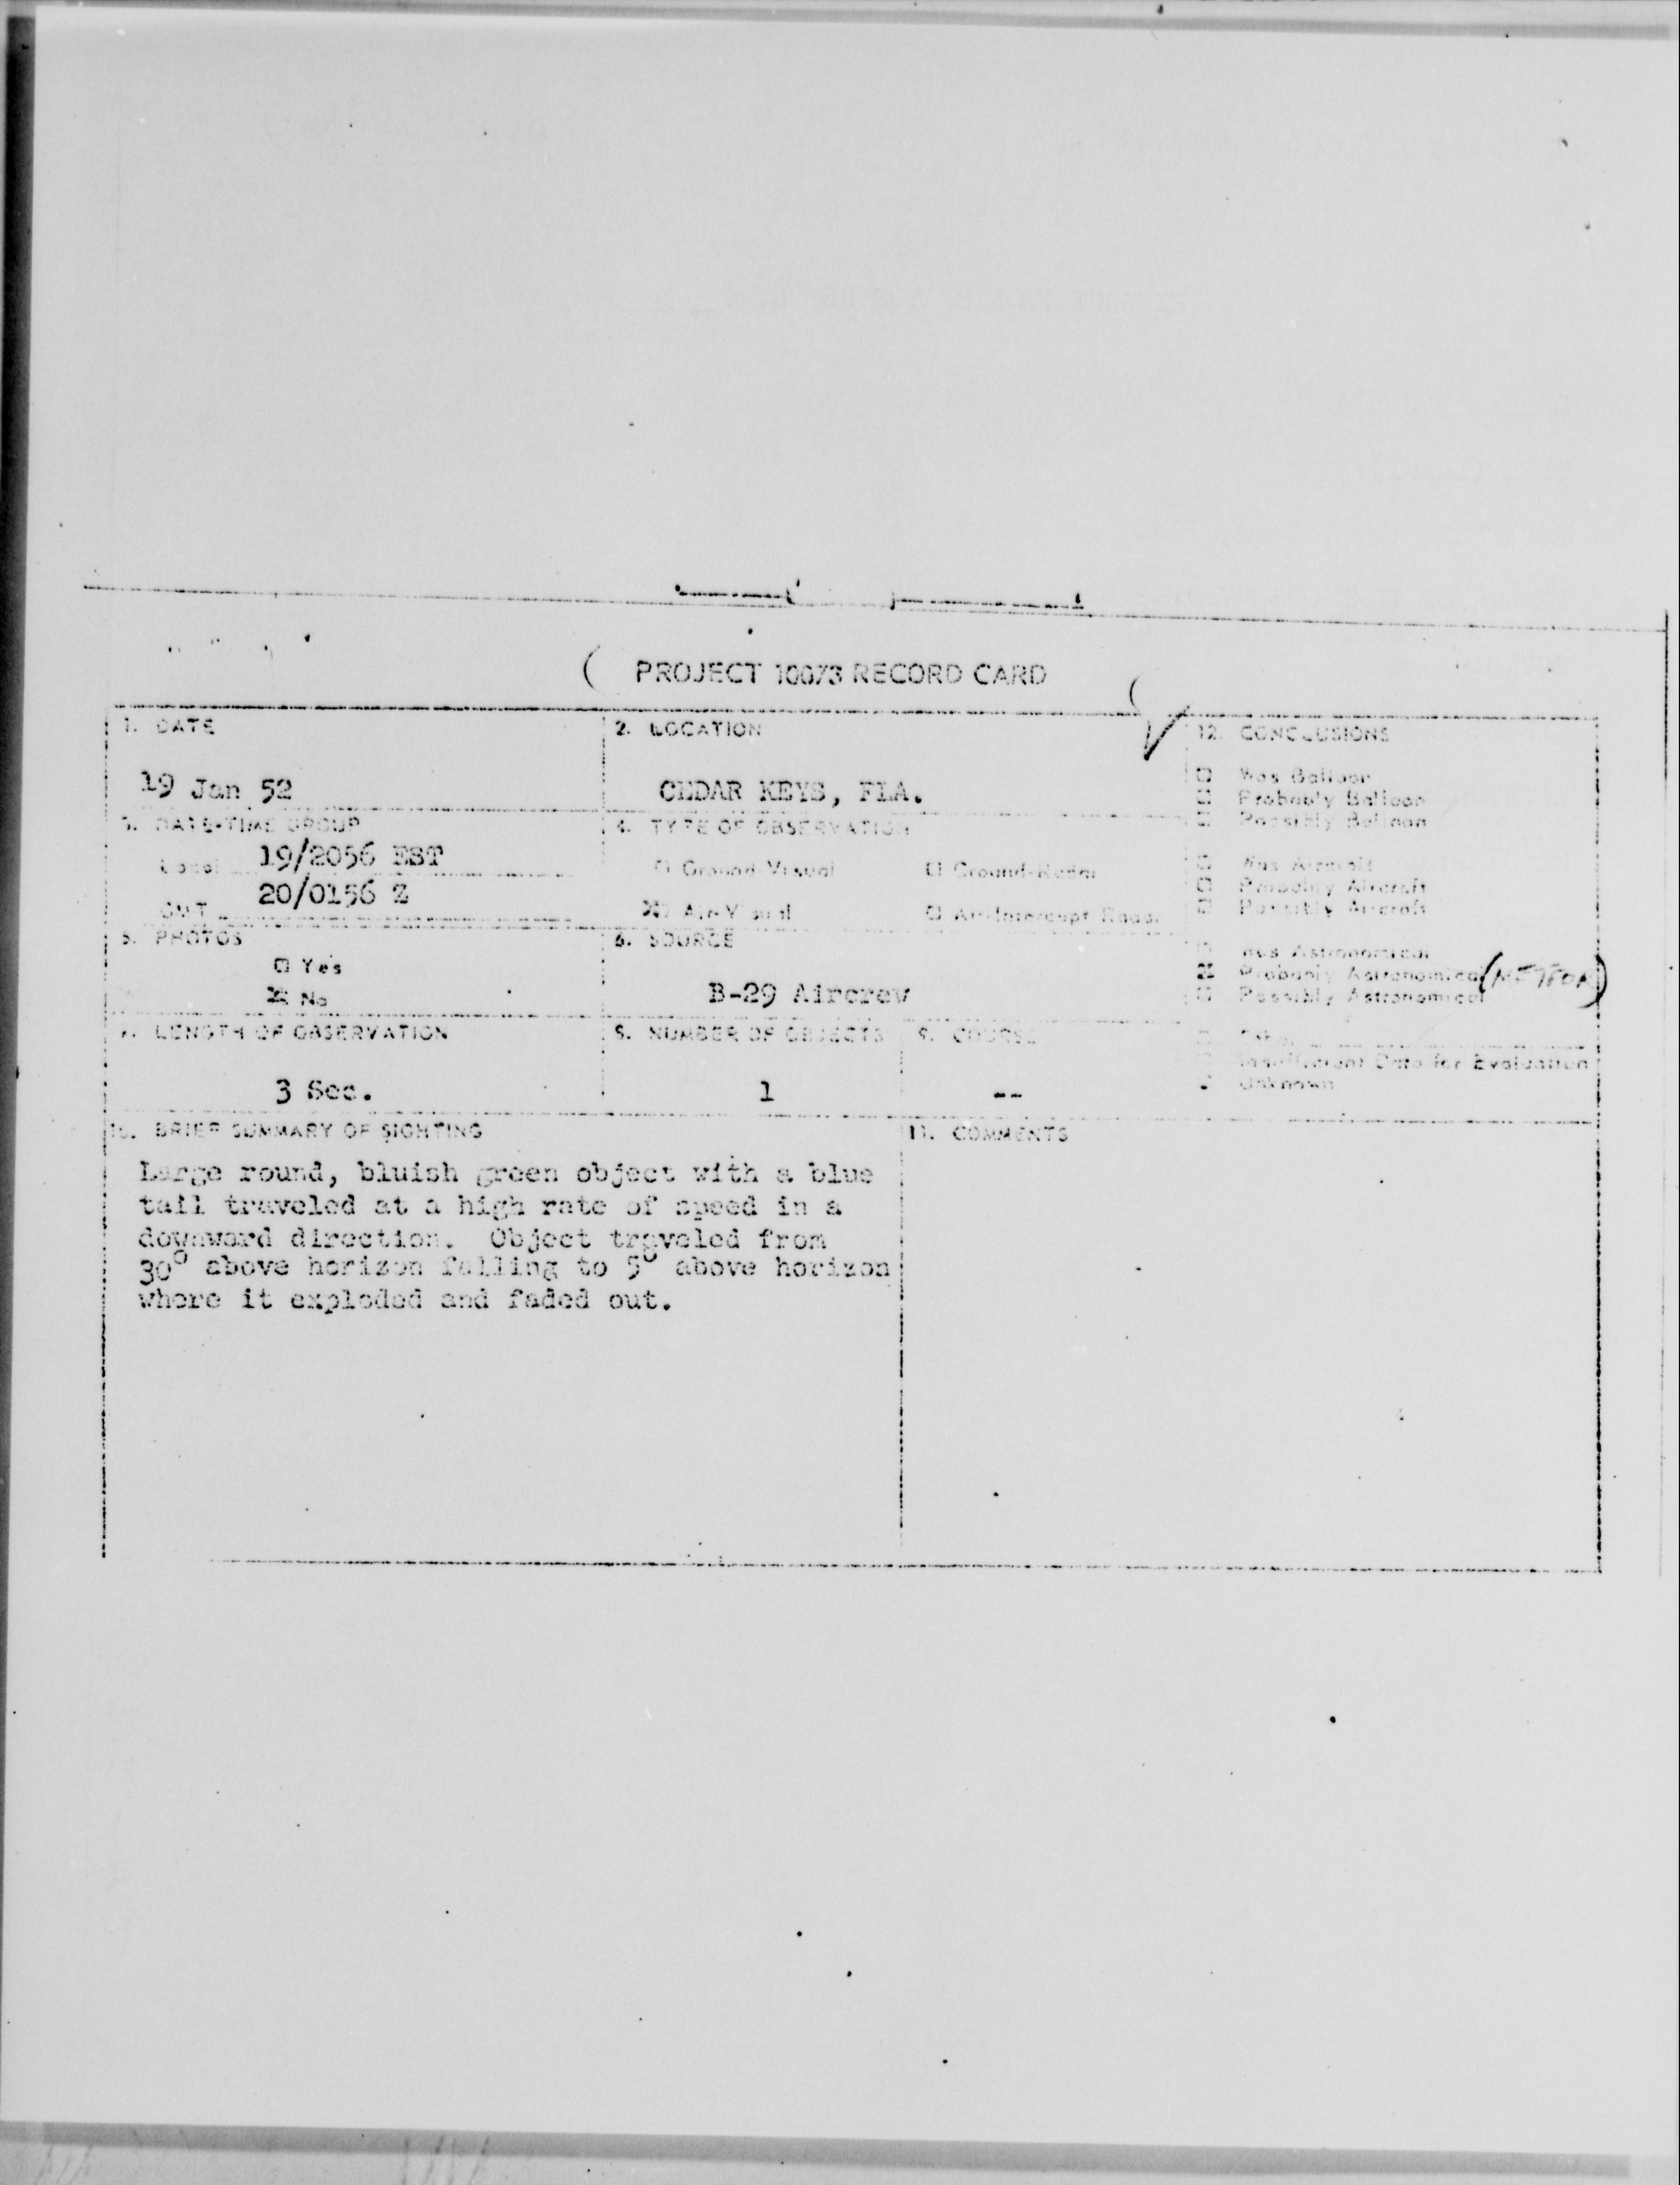 PROJECT 10073 RECORD CARD
1. DATE
19 Jan 52
2. LOCATION
CEDAR KEYS, FLA.
12. CONCLUSIONS
☐ Was Balloon
☐ Probably Balloon
☐ Possibly Balloon
☐ Was Aircraft
☐ Probably Aircraft
☐ Possibly Aircraft
☐ Was Astronomical
☒ Probably Astronomical (METEOR)
☐ Possibly Astronomical
☐ Other
☐ Insufficient Data for Evaluation
☐ Unknown
3. DATE-TIME GROUP
Local 19/2056 EST
GMT 20/0156 Z
4. TYPE OF OBSERVATION
☐ Ground-Visual ☐ Ground-Radar
☒ Air-Visual ☐ Air-Intercept Radar
5. PHOTOS
☐ Yes
☒ No
6. SOURCE
B-29 Aircrew
7. LENGTH OF OBSERVATION
3 Sec.
8. NUMBER OF OBJECTS
1
9. COURSE
--
10. BRIEF SUMMARY OF SIGHTING
Large round, bluish green object with a blue
tail traveled at a high rate of speed in a
downward direction. Object traveled from
30° above horizon falling to 5° above horizon
where it exploded and faded out.
11. COMMENTS